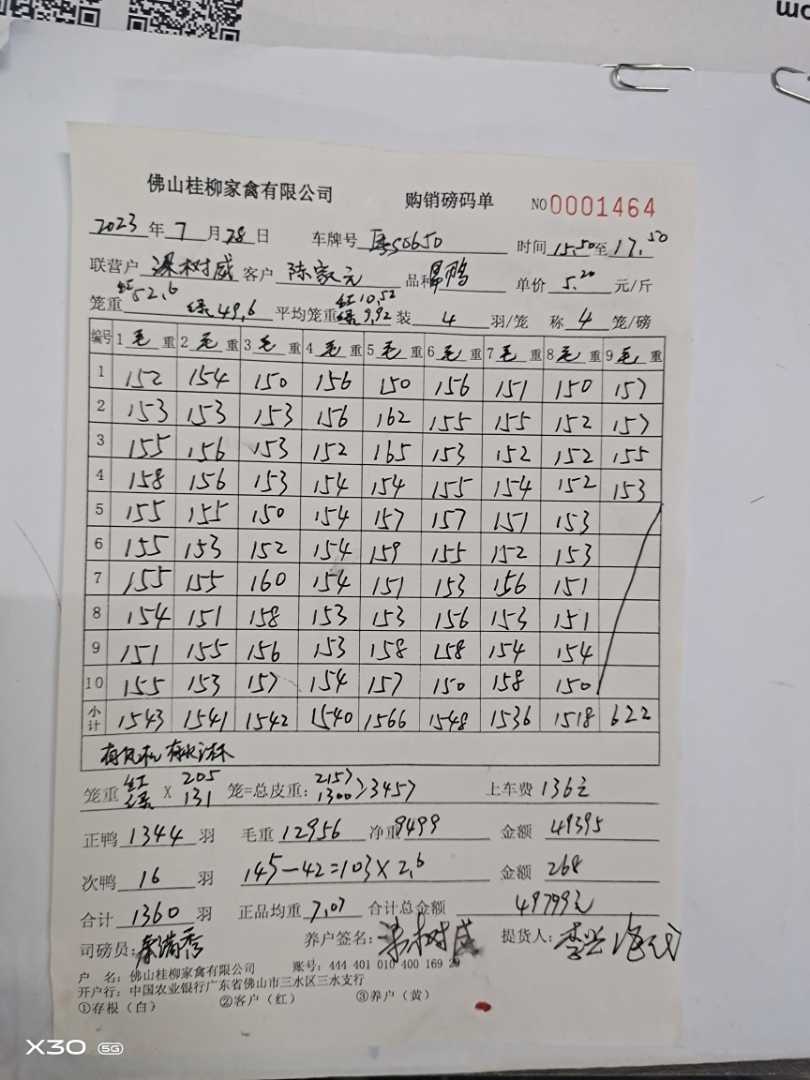 佛山桂柳家禽有限公司 购销磅码单 NO 0001464
2023 年 7 月 28 日 车牌号 S0650 时间 15.50 至 17.50
联营户 梁树威 客户 陈家元 品种 单价 5.20 元/斤
笼重 红52.6 绿49.6 平均笼重 红10.52 绿9.92 装 4 羽/笼 称 4 笼/磅
编号 1 毛 重 2 毛 重 3 毛 重 4 毛 重 5 毛 重 6 毛 重 7 毛 重 8 毛 重 9 毛 重
1 152 154 150 156 150 156 151 150 157
2 153 153 153 156 162 155 155 152 157
3 155 156 153 152 165 153 152 152 155
4 158 156 153 154 154 155 154 152 153
5 155 155 150 154 157 157 151 153
6 155 153 152 154 159 155 152 153
7 155 155 160 154 151 153 156 151
8 154 151 158 153 153 156 153 151
9 151 155 156 153 158 158 154 154
10 155 153 157 154 157 150 158 150
小计 1543 1541 1542 1540 1566 1548 1536 1518 622
笼重 红 绿 X 205 131 笼=总皮重: 2157 1300 3457 上车费 136元
正鸭 1344 羽 毛重 12956 净重 9499 金额 49395
次鸭 16 羽 145-42=103×2.6 金额 268
合计 1360 羽 正品均重 7.07 合计总金额 49799元
司磅员: 养户签名: 梁树威 提货人:
户 名: 佛山桂柳家禽有限公司 账号: 444 401 010 400 169 2
开户行: 中国农业银行广东省佛山市三水区三水支行
①存根（白） ②客户（红） ③养户（黄）
X30 5G